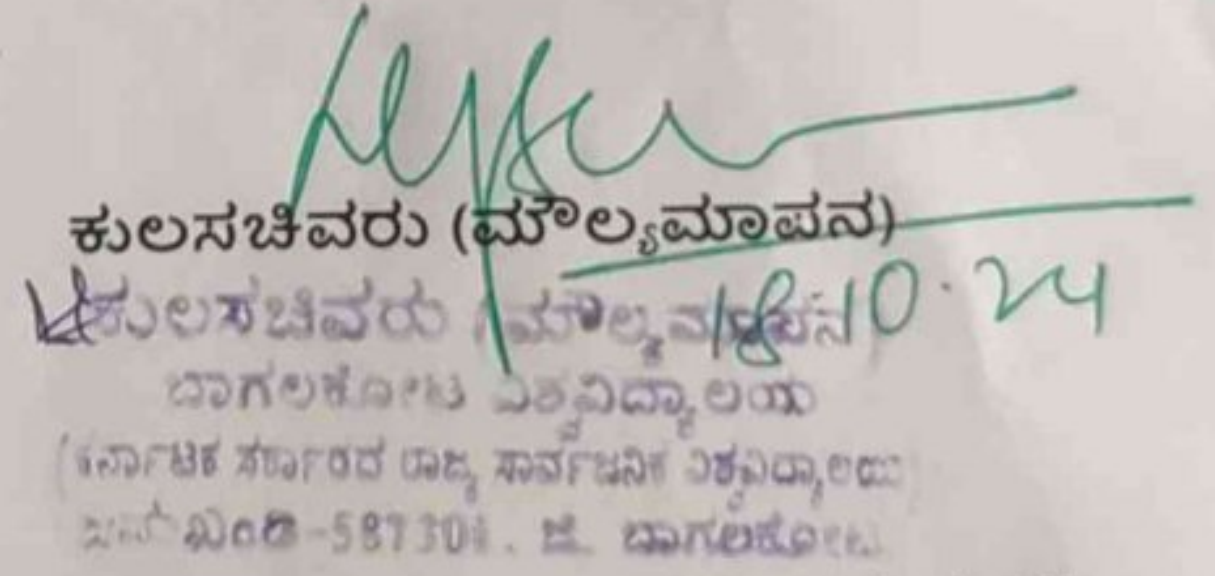 ಕುಲಸಚಿವರು (ಮೌಲ್ಯಮಾಪನ)
18.10.24
ಕುಲಸಚಿವರು (ಮೌಲ್ಯಮಾಪನ)
ಬಾಗಲಕೋಟ ವಿಶ್ವವಿದ್ಯಾಲಯ
(ಕರ್ನಾಟಕ ಸರ್ಕಾರದ ರಾಜ್ಯ ಸಾರ್ವಜನಿಕ ವಿಶ್ವವಿದ್ಯಾಲಯ)
-587301. ಜಿ. ಬಾಗಲಕೋಟ